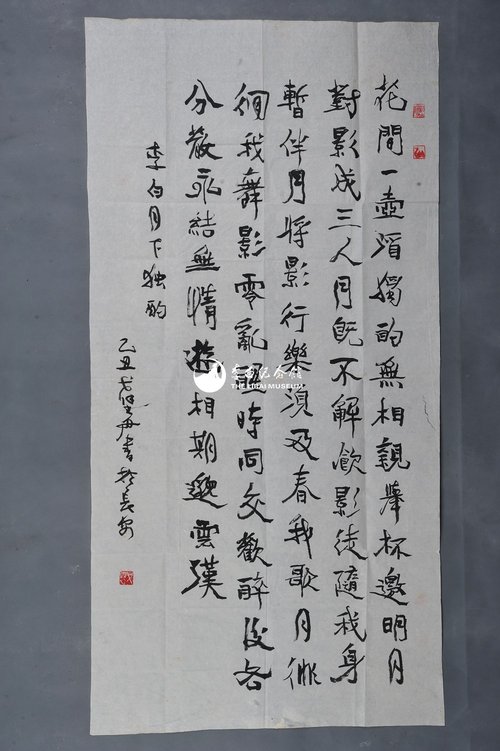 花間一壺酒獨酌無相親舉杯邀明月
對影成三人月既不解飲影徒隨我身
暫伴月將影行樂須及春我歌月徘
徊我舞影零亂醒時同交歡醉後各
分散永結無情游相期邈雲漢
李白月下独酌
乙丑書於長安
李白纪念馆
THE LIBAI MUSEUM